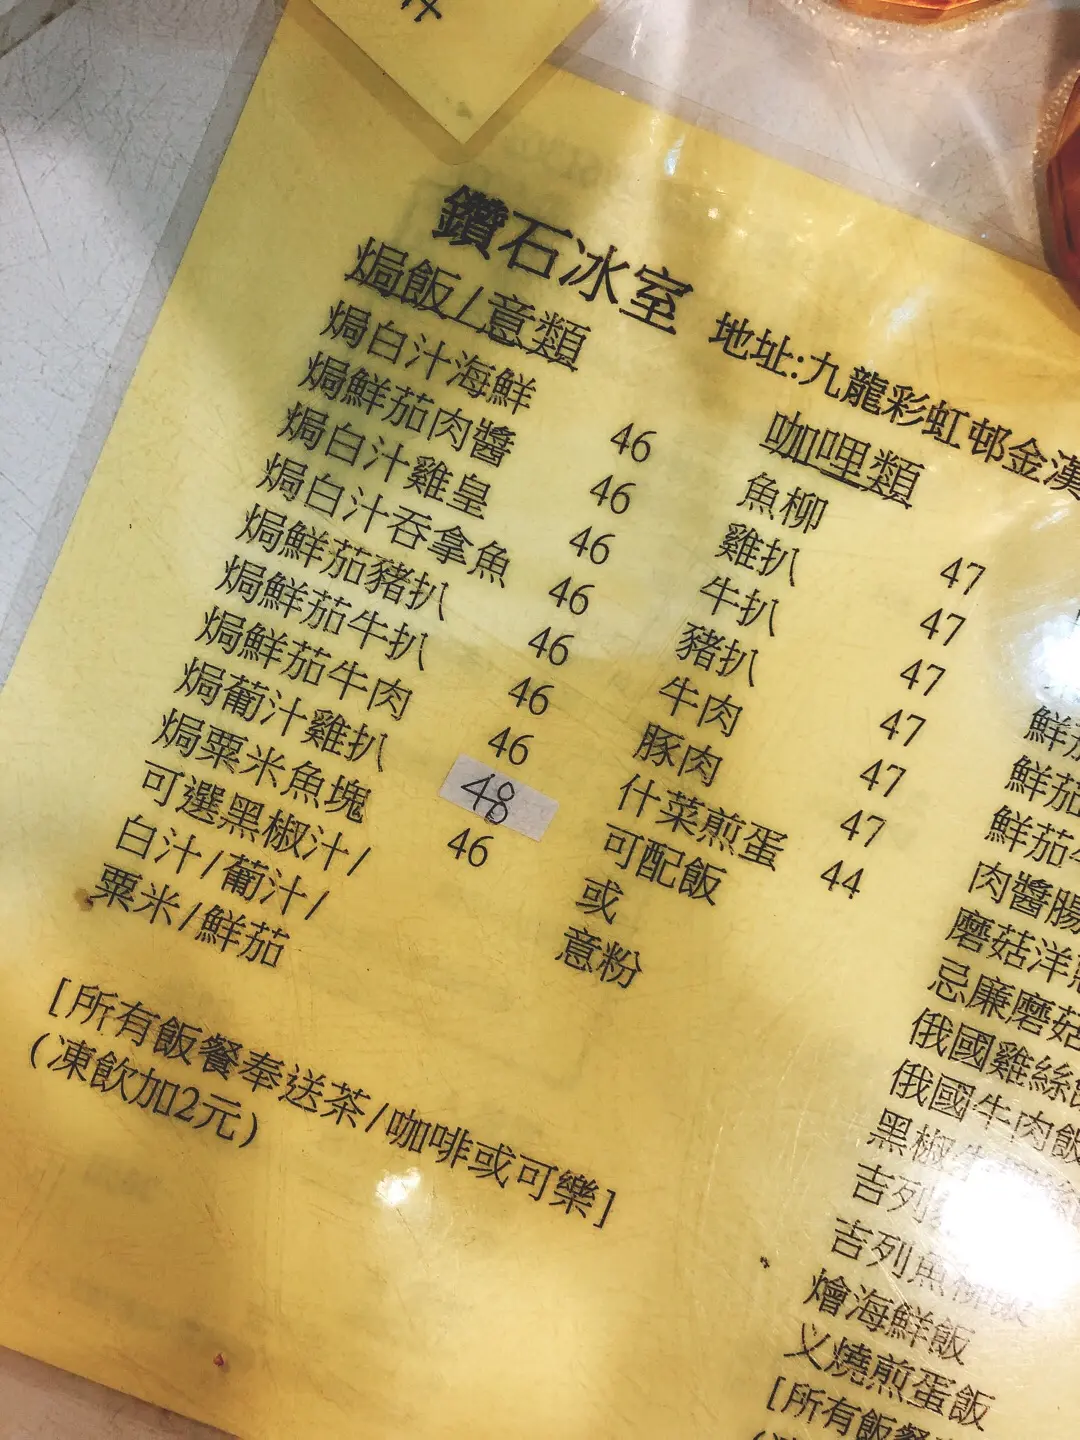 鑽石冰室
地址:九龍彩虹邨金漢
焗飯/意類
焗白汁海鮮 46
焗鮮茄肉醬 46
焗白汁雞皇 46
焗白汁吞拿魚 46
焗鮮茄豬扒 46
焗鮮茄牛扒 46
焗鮮茄牛肉 46
焗葡汁雞扒 48
焗粟米魚塊 46
可選黑椒汁/
白汁/葡汁/
粟米/鮮茄
[所有飯餐奉送茶/咖啡或可樂]
(凍飲加2元)
咖哩類
魚柳 47
雞扒 47
牛扒 47
豬扒 47
牛肉 47
豚肉 47
什菜煎蛋 44
可配飯
或
意粉
鮮茄
鮮茄
鮮茄
肉醬腸
磨菇洋
忌廉磨菇
俄國雞絲飯
俄國牛肉飯
黑椒
吉列
吉列魚柳飯
燴海鮮飯
义燒煎蛋飯
[所有飯餐